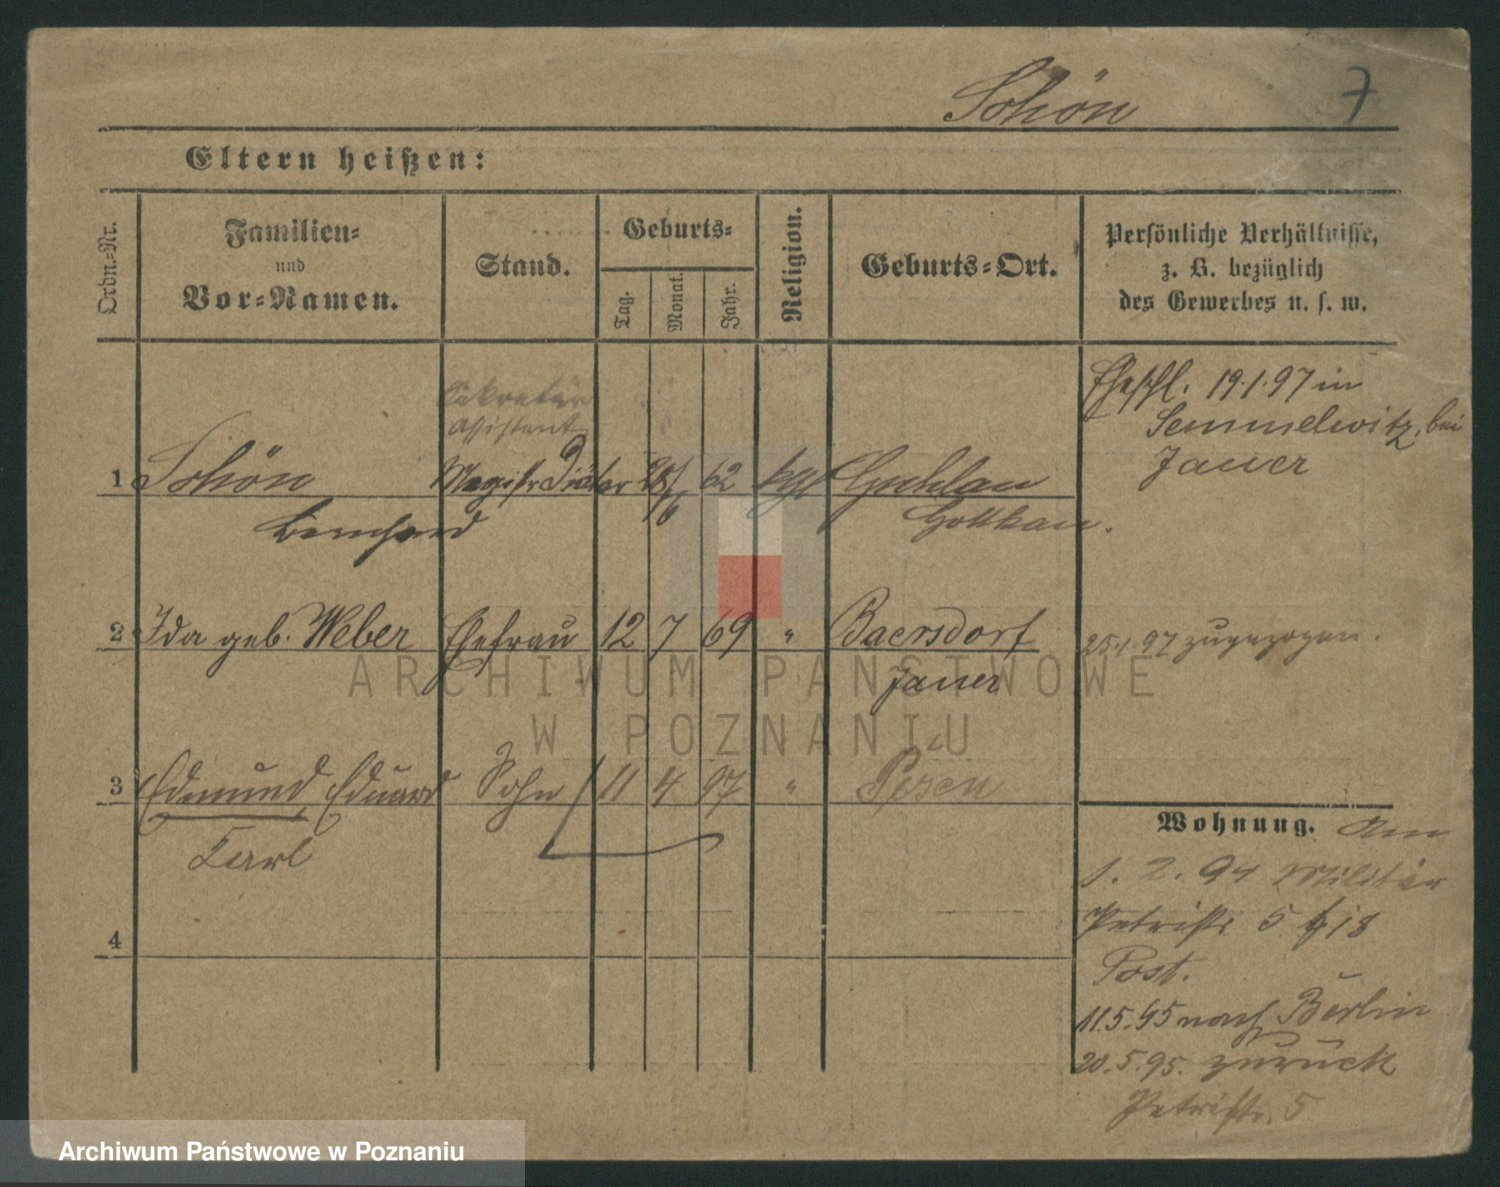 Schön 7
Eltern heißen:
Ordn.-Nr.
Familien-
und
Vor-Namen.
Stand.
Geburts-
Tag.
Monat.
Jahr.
Religion.
Geburts-Ort.
Persönliche Verhältnisse,
z. B. bezüglich
des Gewerbes u. s. w.
Eheschl. 19.1.97 in
Semmelwitz, bei
Jauer
Sekretär
Assistent
1 Schön Magistr Diätar 28/6 62 kgl Guhlau
Bernhard Gollkau.
2 Ida geb. Weber Ehefrau 12 7 69 " Baersdorf
Jauer
25.1.97 zugezogen.
3 Edmund, Eduard Sohn 11 4 97 " Posen
Carl
4
Wohnung. Am
1. 2. 94 Militär
Petristr 5 bei
Post.
11.5.95 nach Berlin
20.5.95. zurück
Petristr. 5
ARCHIWUM PAŃSTWOWE
W POZNANIU
Archiwum Państwowe w Poznaniu